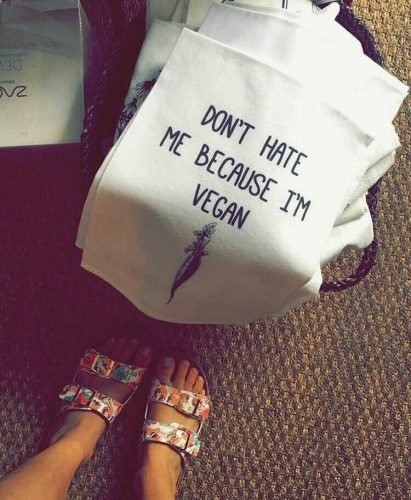 DON'T HATE
ME BECAUSE I'M
VEGAN